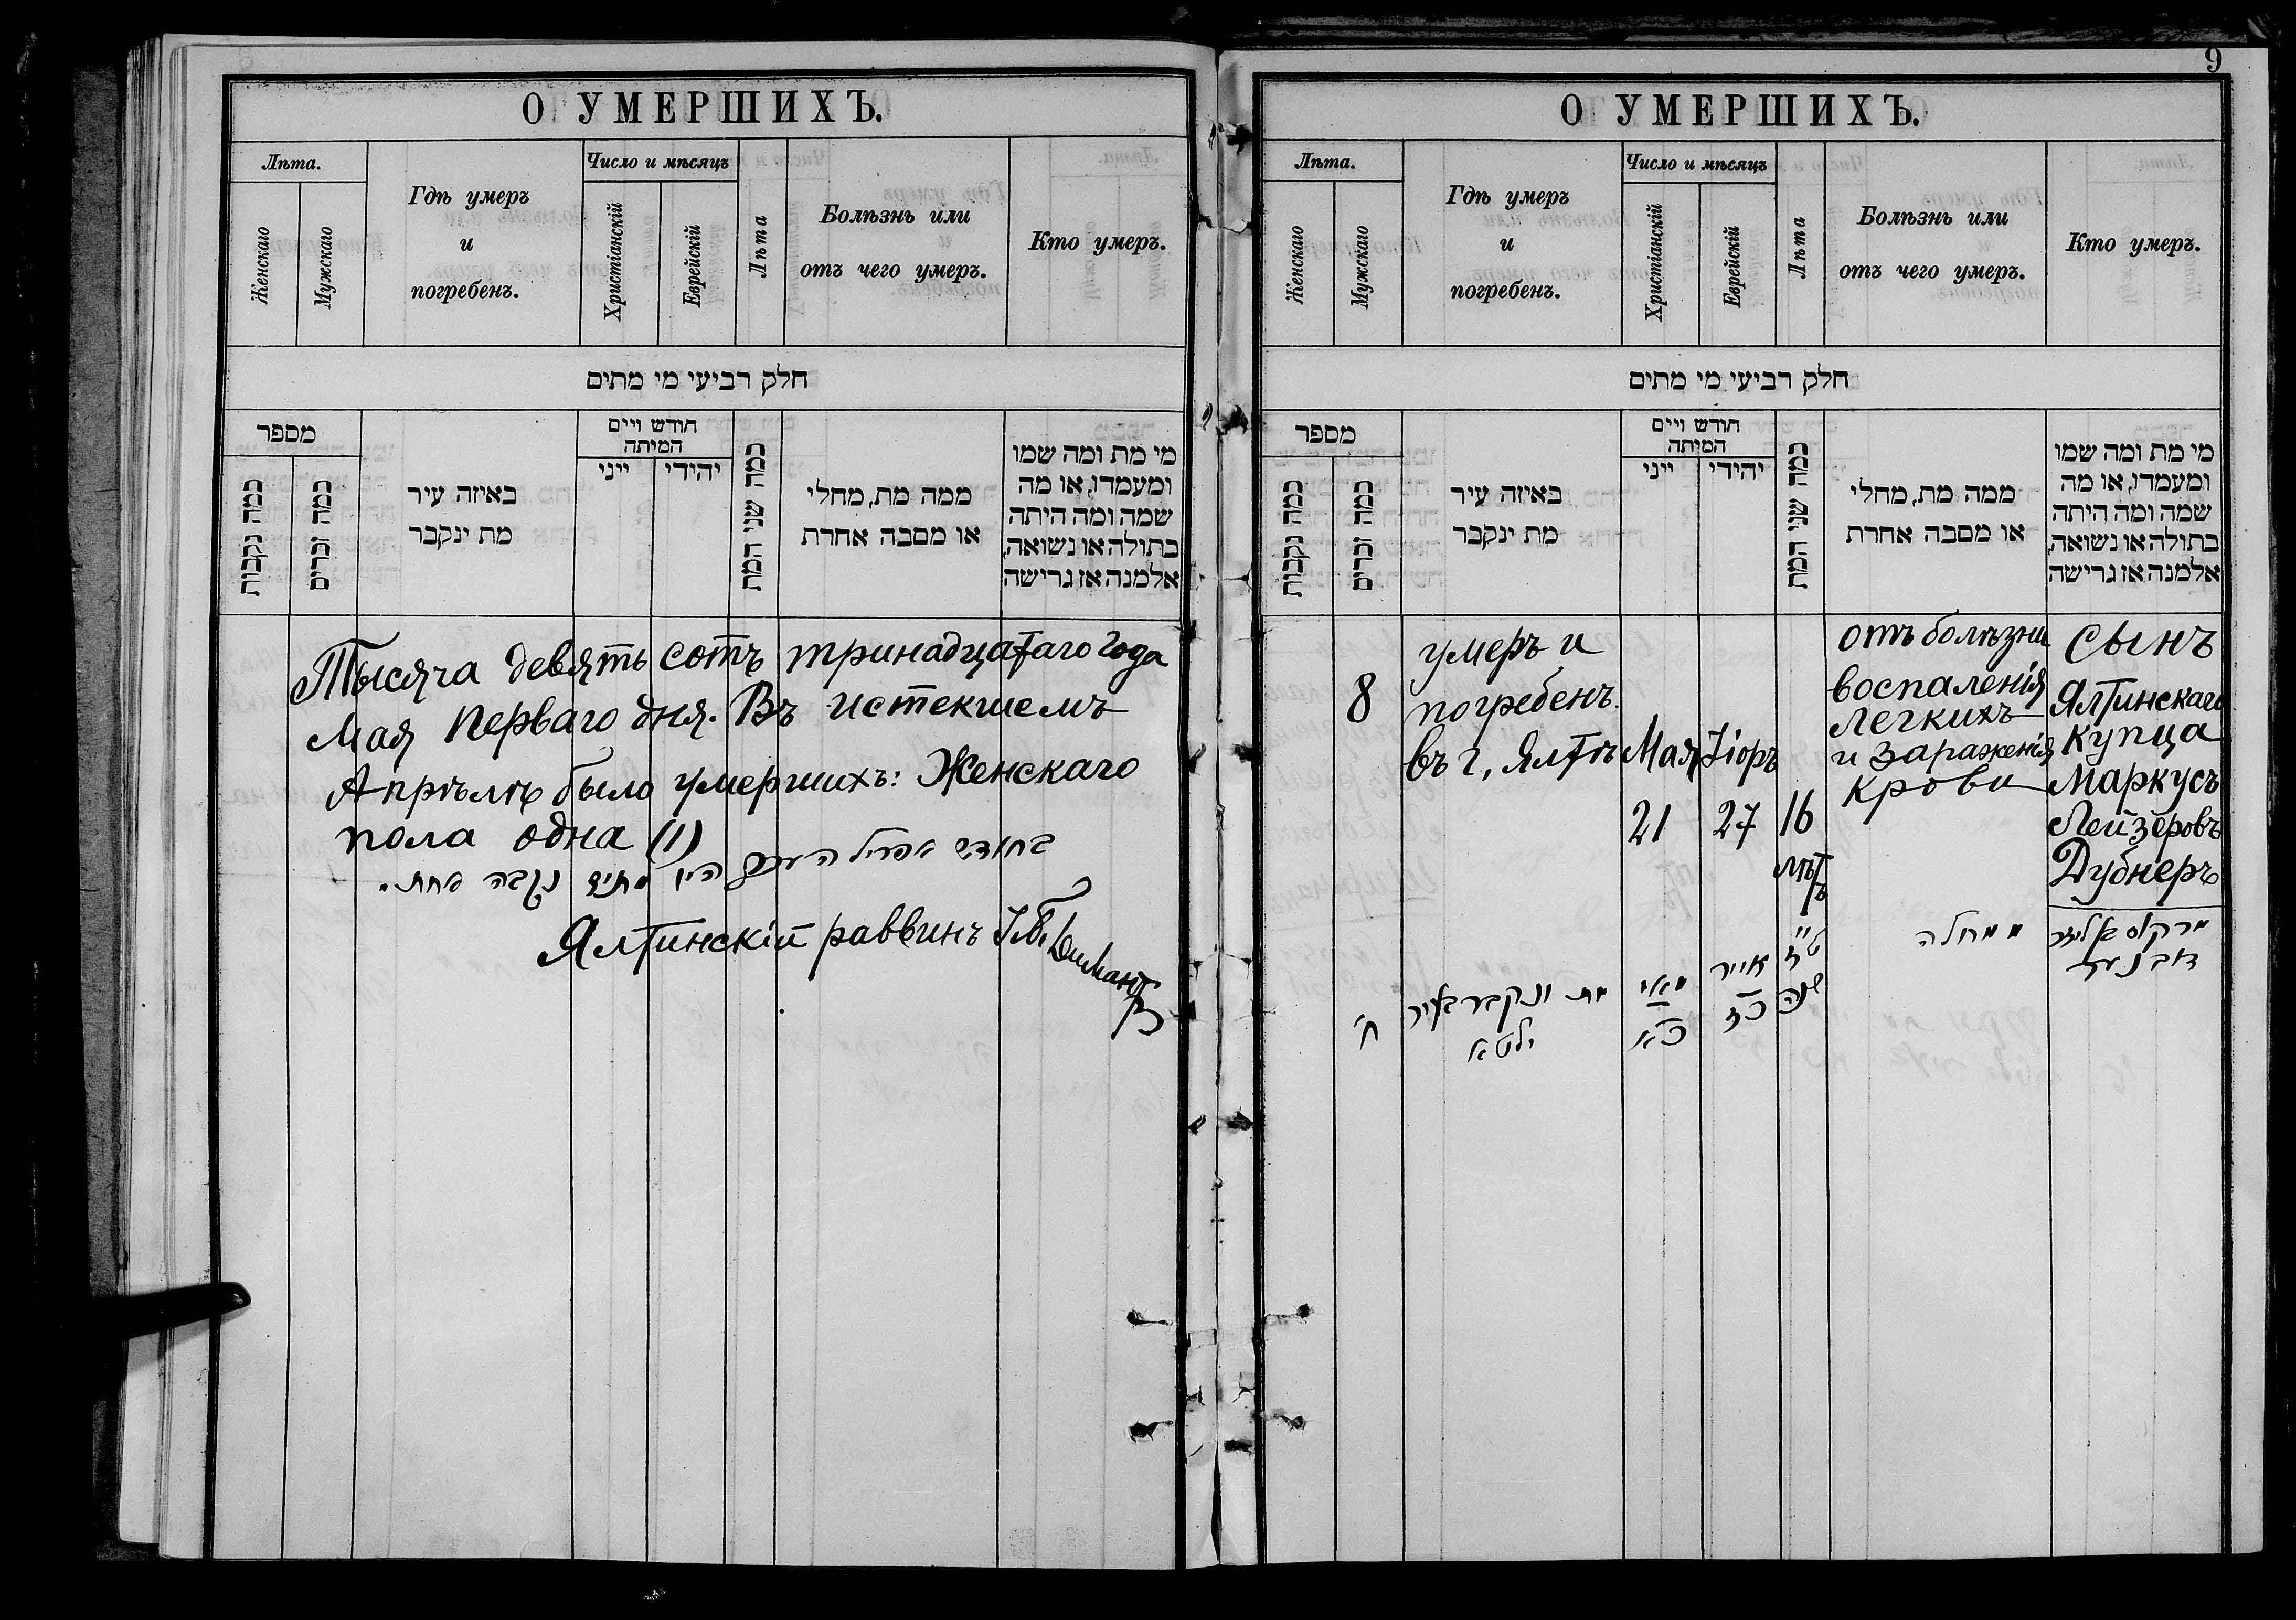 О УМЕРШИХЪ.
Лѣта.
Женскаго
Мужскаго
Гдѣ умеръ
и
погребенъ.
Число и мѣсяцъ
Христіанскій
Еврейскій
Лѣта
Болѣзнь или
отъ чего умеръ.
Кто умеръ.
חלק רביעי מי מתים
מספר
כמה נקבות
כמה זכרים
באיזה עיר
מת ינקבר
חודש ויים
המיתה
ייני
יהידי
כמה שני המת
ממה מת, מחלי
או מסבה אחרת
מי מת ומה שמו
ומעמדו, או מה
שמה ומה היתה
בתולה או נשואה,
אלמנה אז גרישה
Тысяча девять сотъ тринадцатаго года
Мая перваго дня. Въ истекшемъ
Апрѣлѣ было умершихъ: Женскаго
пола одна (1)
בחודש אפריל היו מתים נקבה אחת.
Ялтинскій раввинъ
9
О УМЕРШИХЪ.
Лѣта.
Женскаго
Мужскаго
Гдѣ умеръ
и
погребенъ.
Число и мѣсяцъ
Христіанскій
Еврейскій
Лѣта
Болѣзнь или
отъ чего умеръ.
Кто умеръ.
חלק רביעי מי מתים
מספר
כמה נקבות
כמה זכרים
באיזה עיר
מת ינקבר
חודש ויים
המיתה
ייני
יהידי
כמה שני המת
ממה מת, מחלי
או מסבה אחרת
מי מת ומה שמו
ומעמדו, או מה
שמה ומה היתה
בתולה או נשואה,
אלמנה אז גרישה
8
умеръ и
погребенъ
въ г. Ялтѣ
Мая
21
Іоръ
27
16
лѣтъ
отъ болѣзни
воспаленія
легкихъ
и зараженія
крови
сынъ
Ялтинскаго
купца
Маркусъ
Лейзеровъ
Дубнеръ
ח'
מת ונקבר בעיר
ילטא
מאי
כא
אייר
כז
ט"ז
שנה
ממחלה
מרקוס אליעזר
דובנער